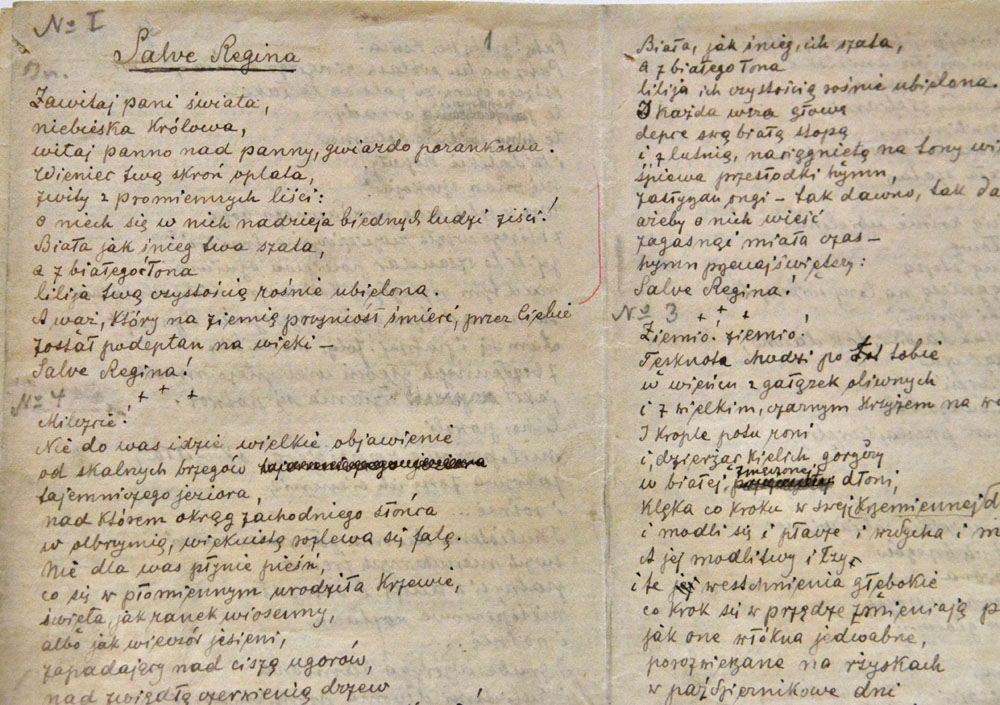 № I
1
Salve Regina
Zawitaj pani świata,
niebieska Królowa,
witaj panno nad panny, gwiazdo porankowa!
Wieniec twą skroń oplata,
zwity z promiennych liści:
o niech się w nich nadzieja biednych ludzi ziści!
Biała jak śnieg twa szata,
a z białego łona
lilija twą czystością rośnie ubielona.
A wąż, który na ziemię przyniósł śmierć, przez Ciebie
został podeptan na wieki –
Salve Regina!
+ + +
№ 4
Milczcie!
Nie do was idzie wielkie objawienie
od skalnych brzegów
tajemniczego jeziora,
nad którem okrąg zachodniego słońca
w olbrzymią, wiekuistą rozlewa się falę.
Nie dla was płynie pieśń,
co się w płomiennym urodziła Krzewie,
święta, jak ranek wiosenny,
albo jak wieczór jesieni,
zapadający nad ciszą ugorów,
nad zwiędłą czerwienią drzew
Biała, jak śnieg, ich szata,
a z białego łona
lilija ich czystością rośnie ubielona.
I Każda węża głowę
depce swą białą stopą
i z lutnią, naciągniętą na tony
śpiewa przesłodki hymn,
zasłyszan ongi – tak dawno, tak
ażeby o nich wieść
zagasnąć miała czas –
hymn przenajświętszy:
Salve Regina!
+ + +
№ 3
Ziemio! ziemio!
Tęsknota chodzi po tobie
w wieńcu z gałązek oliwnych
i z wielkim, czarnym Krzyżem na
I Krople potu roni
i, dzierżąc Kielich goryczy
w białej, zmęczonej dłoni,
Klęka co kroku w swej Krzemiennej
i modli się i płacze i wzdycha i
A jej modlitwy i łzy
i te westchnienia głębokie
co krok się w przędzę zmieniają
jak one włókna jedwabne,
porozwieszane na rżyskach
w październikowe dni